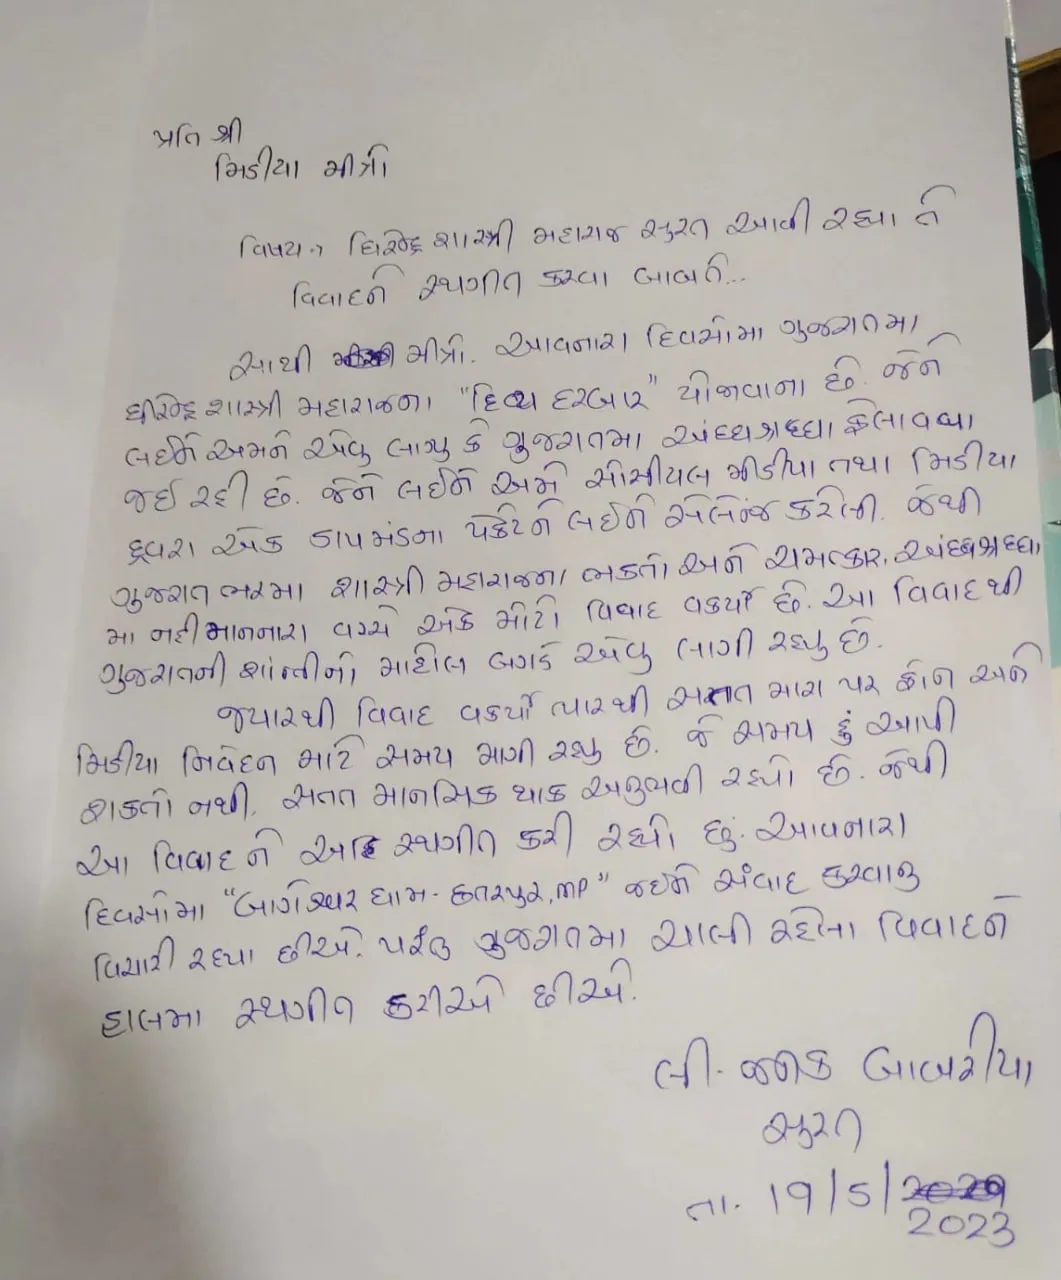 પ્રતિ શ્રી
મિડીયા મીત્રો
વિષય :- ધિરેન્દ્ર શાસ્ત્રી મહારાજ સુરત આવી રહ્યા તે
વિવાદને સ્થગીત કરવા બાબતે...
આથી મીત્રો. આવનારા દિવસોમા ગુજરાતમા
ધીરેન્દ્ર શાસ્ત્રી મહારાજના "દિવ્ય દરબાર" યોજાવાના છે. જેને
લઈને અમને એવુ લાગ્યુ કે ગુજરાતમા અંધશ્રધ્ધા ફેલાવવા
જઈ રહી છે. જેને લઈને અમે સોસીયલ મીડીયા તથા મિડીયા
દ્વારા એક હાયમંડના પેકેટને લઈને ચેલેન્જ કરેલી. જેથી
ગુજરાત ભરમા શાસ્ત્રી મહારાજના ભક્તો અને ચમત્કાર, અંધશ્રધ્ધા
મા નહી માનનારા વચ્ચે એક મોટો વિવાદ વકર્યો છે. આ વિવાદથી
ગુજરાતની શાંન્તીનો માહોલ બગડે એવુ લાગી રહ્યુ છે.
જ્યારથી વિવાદ વકર્યો ત્યારથી સતત મારા પર ફોન અને
મિડીયા નિવેદન માટે સમય માગી રહ્યુ છે. જે સમય હું આપી
શકતો નથી. સતત માનસિક થાક અનુભવી રહ્યો છે. જેથી
આ વિવાદ ને સ્થગીત કરી રહ્યો છું. આવનારા
દિવસોમા "બાગેશ્વર ધામ - છતરપુર, MP" જઈને સંવાદ કરવાનુ
વિચારી રહ્યા છીએ. પરંતુ ગુજરાતમા ચાલી રહેલા વિવાદને
હાલમા સ્થગીત કરીએ છીએ.
લી. જનક બાબરીયા
સુરત
તા. 19/5/
2023